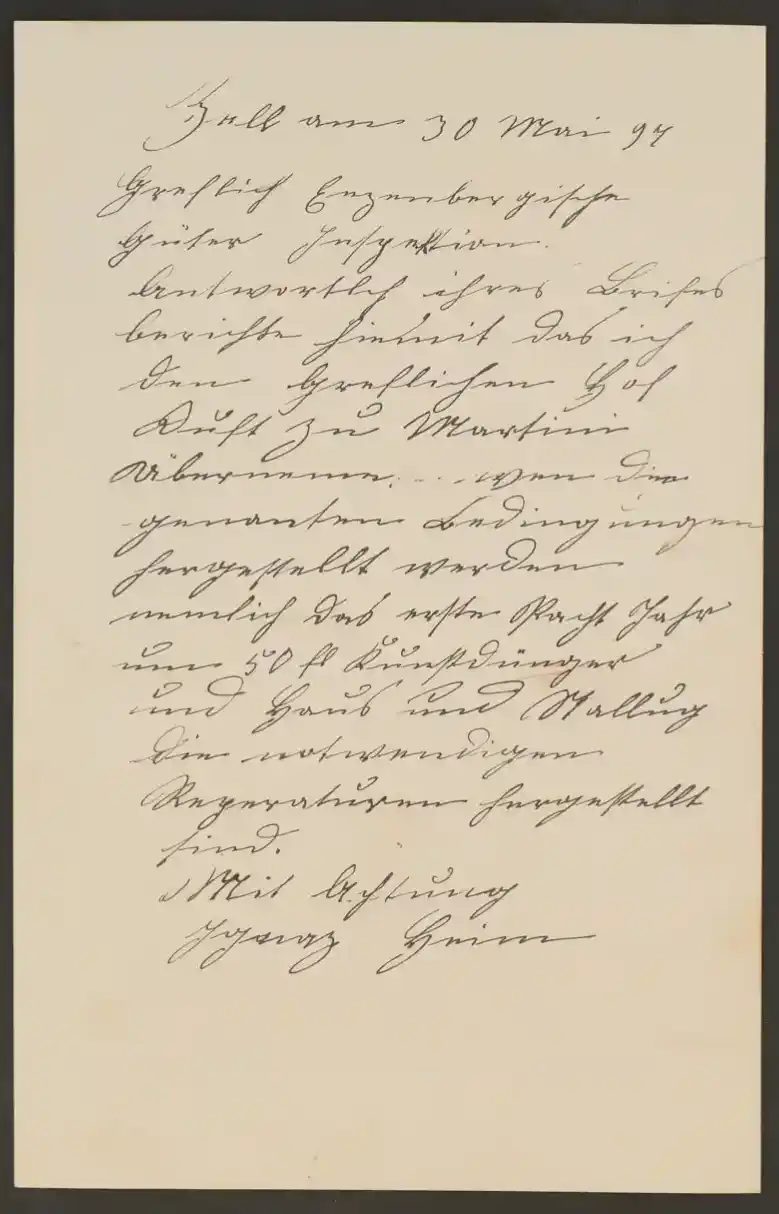 Zell am 30 Mai 97
Greflich Enzenbergische
Güter Inspektion.
Antwortlch ihres Brifes
berichte hiemit das ich
den Greflichen Hof
Kuft zu Martini
Übernemme. . . wen die
genanten Bedingungen
hergestellt werden
nemlich das erste Pacht Jahr
um 50 fl Kunstdünger
und Haus und Stallug
die notwendigen
Reperaturen hergestellt
sind.
Mit Achtung
Ignaz Heim